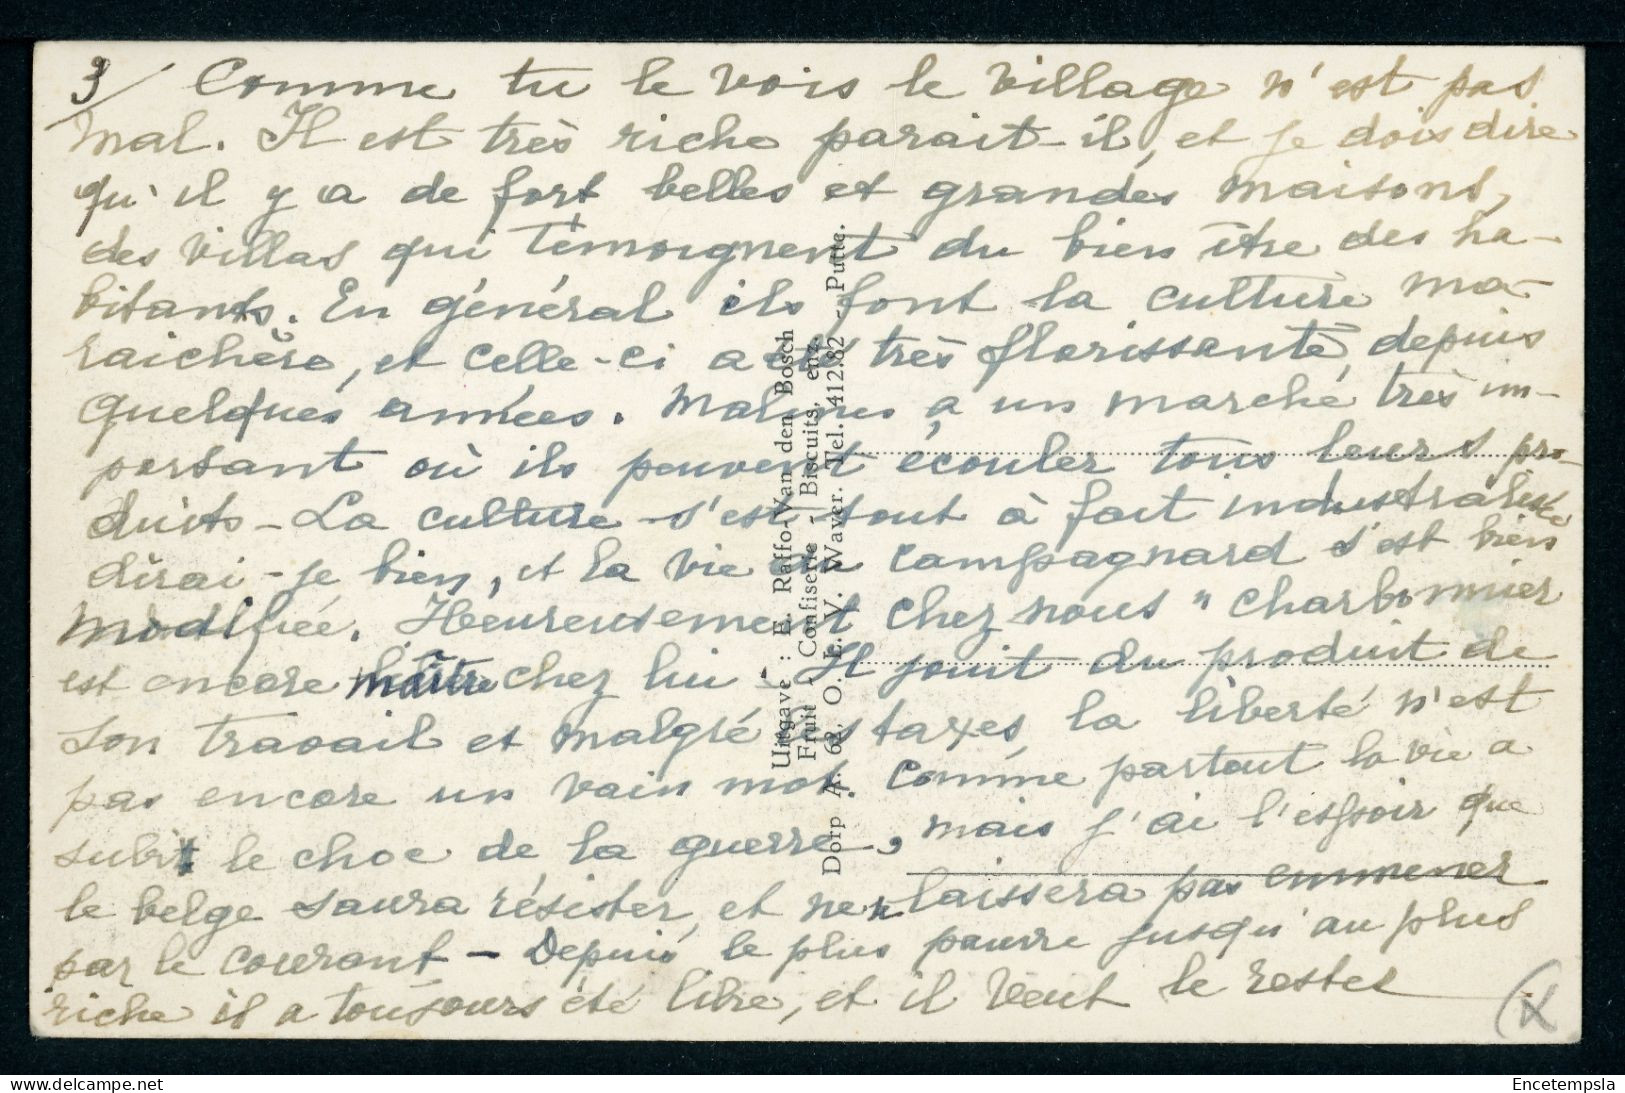 3/ Comme tu le vois le village n'est pas
mal. Il est très riche parait-il, et je dois dire
qu'il y a de fort belles et grandes maisons,
des villas qui témoignent du bien être des ha-
bitants. En général ils font la culture ma-
raichère, et celle-ci a été très florissante, depuis
quelques années. Malines a un marché très im-
portant où ils peuvent écouler tous leurs pro-
duits - La culture s'est tout à fait industralisée
dirai-je bien, et la vie du campagnard s'est bien
modifiée. Heureusement chez nous " charbonnier
est encore maître chez lui - Il jouit du produit de
son travail et malgré les taxes, la liberté n'est
pas encore un vain mot. Comme partout la vie a
subit le choc de la guerre, mais j'ai l'espoir que
le belge saura résister, et ne laissera pas emmener
par le courant - Depuis le plus pauvre jusqu'au plus
riche il a toujours été libre, et il veut le rester
Uitgave : E. Raffo-Van den Bosch
Fruit - Confiserie - Biscuits, enz.
Dorp A. 62, O. L. V. Waver. Tel. 412.82 - Putte.
Encetempsla